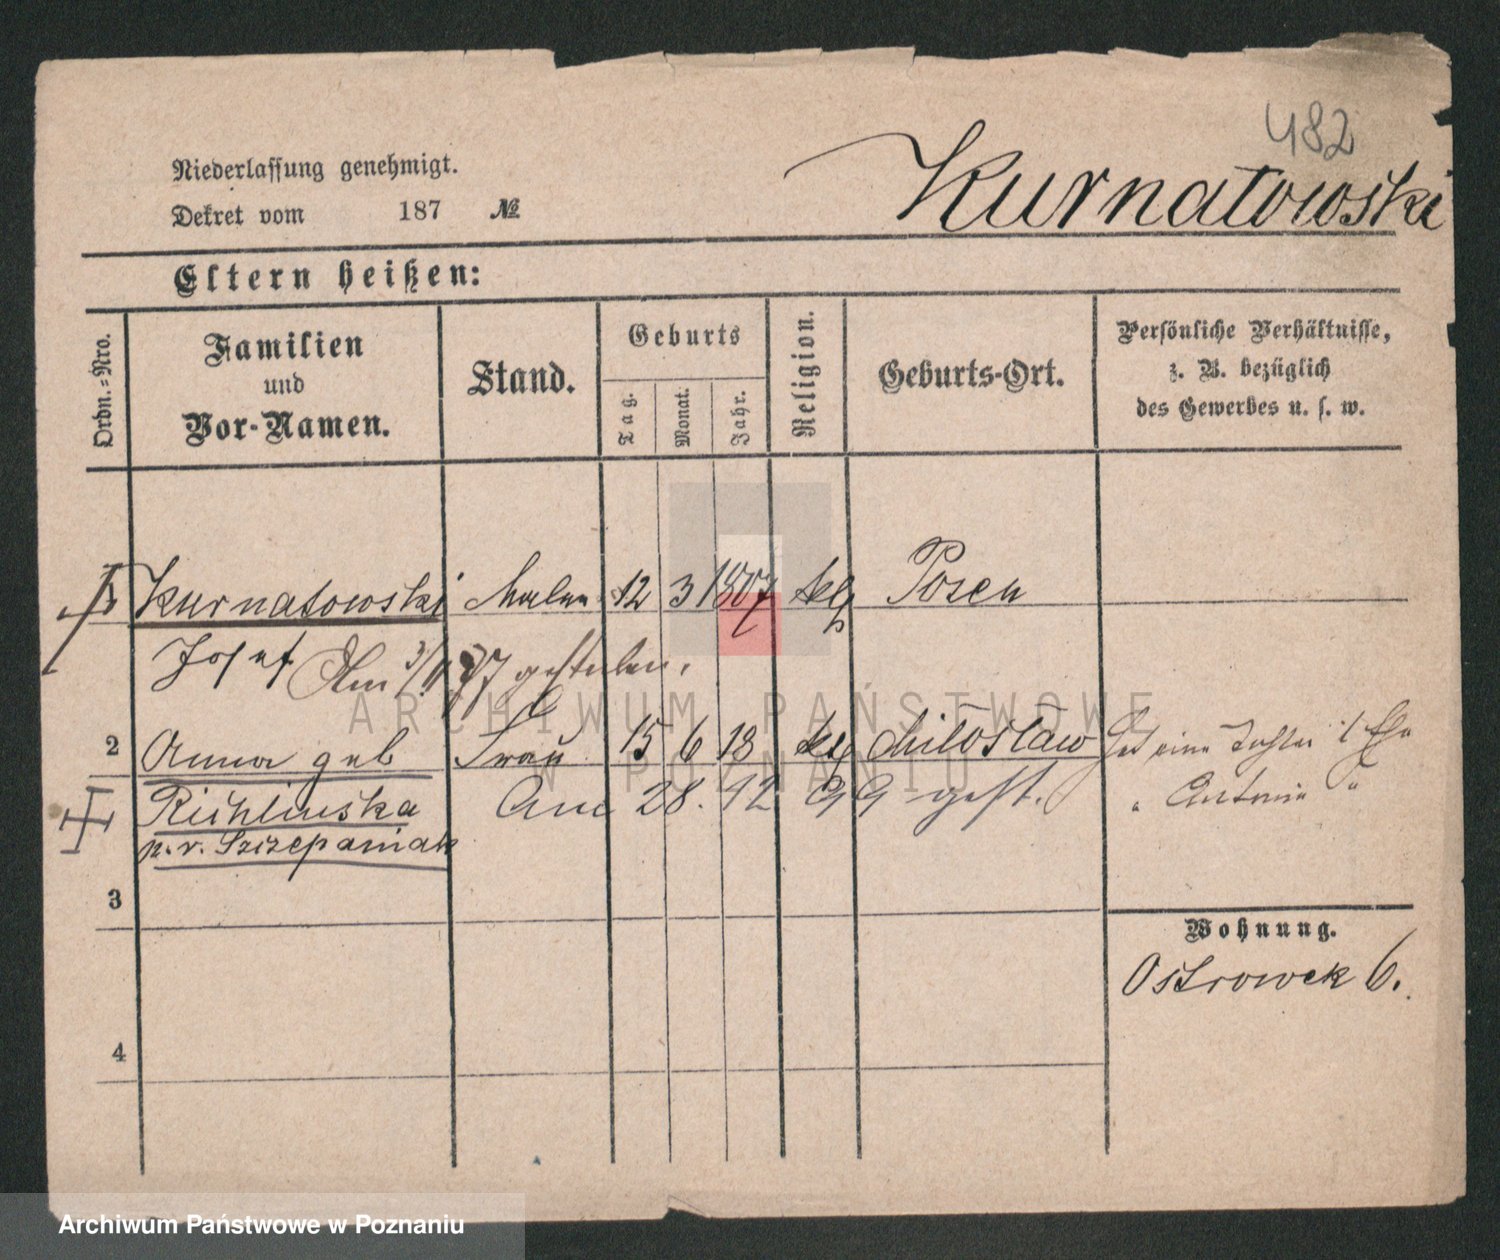 482
Kurnatowski
Niederlassung genehmigt.
Dekret vom 187 №
Eltern heißen:
Ordn.=Nro.
Familien
und
Vor-Namen.
Stand.
Geburts
Tag.
Monat.
Jahr.
Religion.
Geburts-Ort.
Persönliche Verhältnisse,
z. B. bezüglich
des Gewerbes u. s. w.
Kurnatowski Maler 12 3 1807 Posen
Josef Am 3/11 77 gestorben.
2 Anna geb Frau 15 6 18 Miloslaw Hat eine Tochter
Am 28. 12 99 gest. " Antonie "
p. v. Szczepaniak
3
4
Wohnung.
Ostrowek 6.
ARCHIWUM PAŃSTWOWE
W POZNANIU
Archiwum Państwowe w Poznaniu